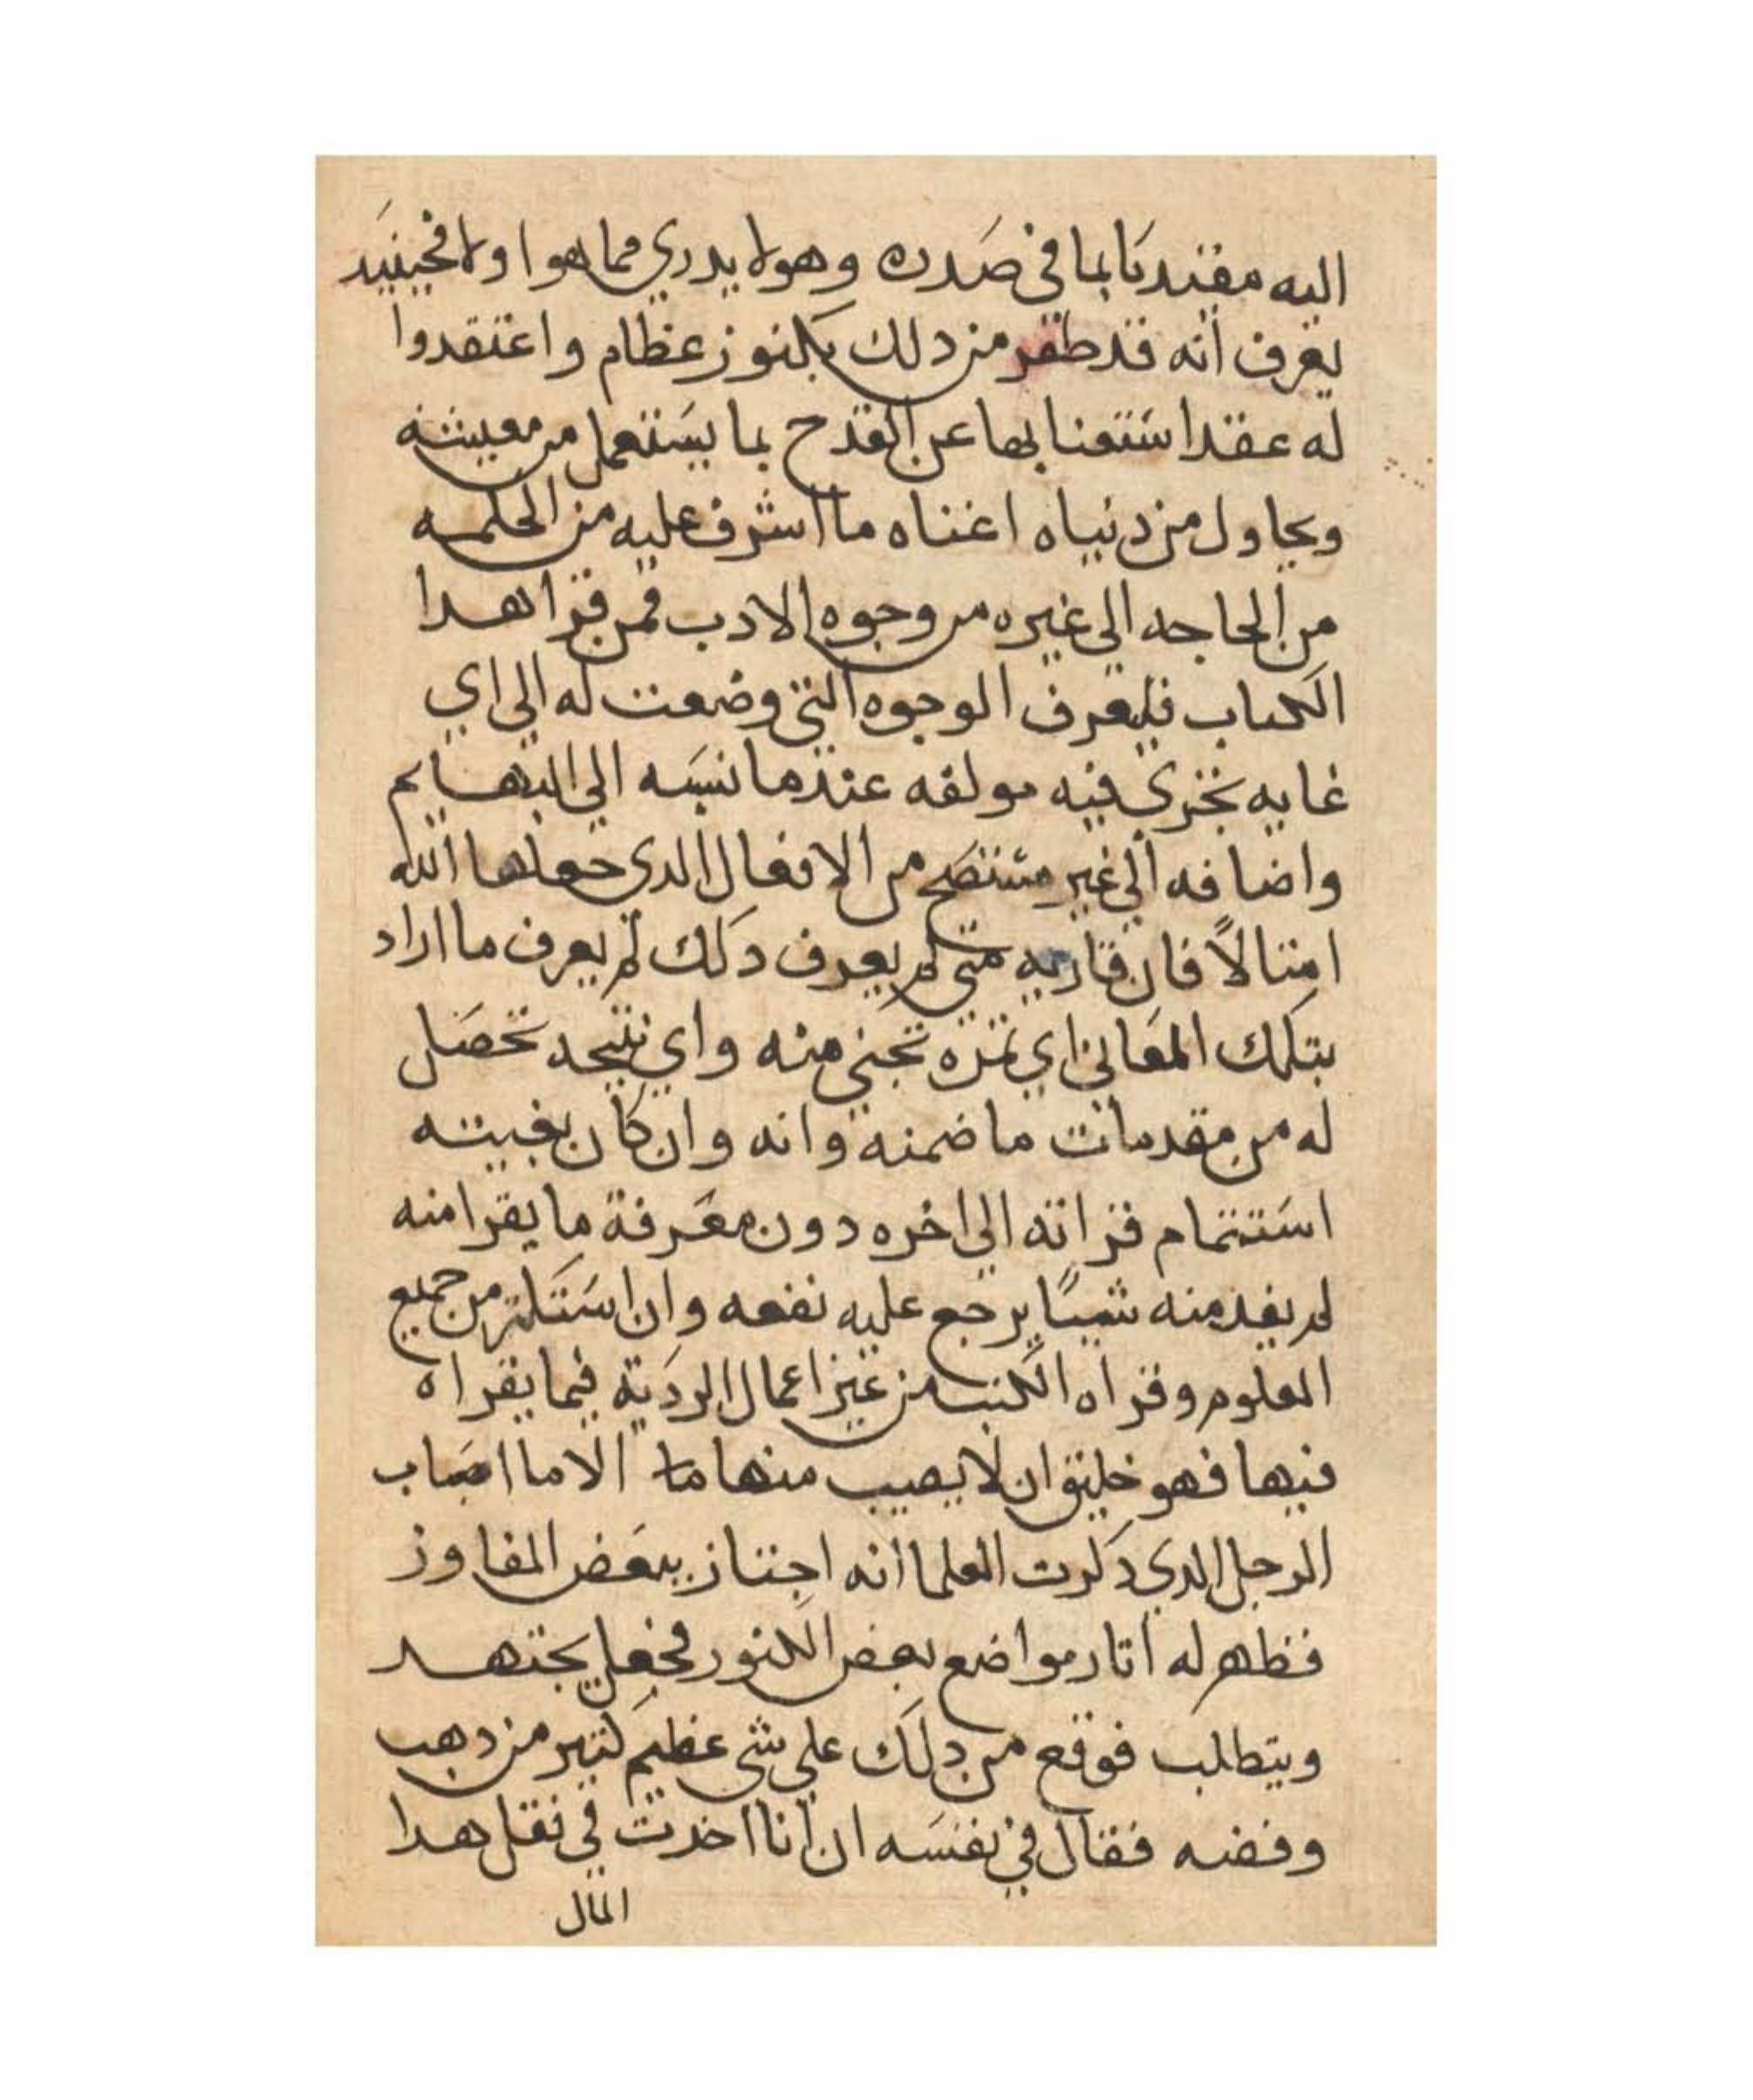 اليه مقتديا بما في صدره وهو لا يدري مما هوا ولا فحينيد
يعرف انه قد ظفر من دلك بكنوز عظام واعتقدوا
له عقدا ستعنا بها عن القدح بما يستعمل من معيشته
ويحاول من دنياه اغناه ما اشرف عليه من الحكمه
من الحاجه الي غيره من وجوه الادب فمن قرا هدا
الكتاب فليعرف الوجوه التي وضعت له الي اي
غايه نجري فيه مولفه عندما نسبه الي البهايم
واضافه الي غير متنصح من الافعال الدي جعلها الله
امتالاً فان قاريه متي لم يعرف دلك لم يعرف ما اراد
بتلك المعاني اي تمره تجني منه واي نتيجه تحصل
له من مقدمات ما ضمنه وانه وان كان بغيته
استتمام قراته الي اخره دون معرفة ما يقرا منه
لم يفد منه شيئاً يرجع عليه نفعه وان استكتر من جميع
العلوم وقراه الكتب من غير اعمال الرديه فيما يقراه
فيها فهو خليق ان لا يصيب منها ما الا ما اصاب
الرجل الدي دكرت العلما انه اجتاز ببعض المفاوز
فظهر له اتار مواضع بعض الكنور فجعل يجتهد
ويتطلب فوقع من دلك علي شي عظيم كتير من دهب
وفضه فقال في نفسه ان انا اخدت في نقل هدا
المال